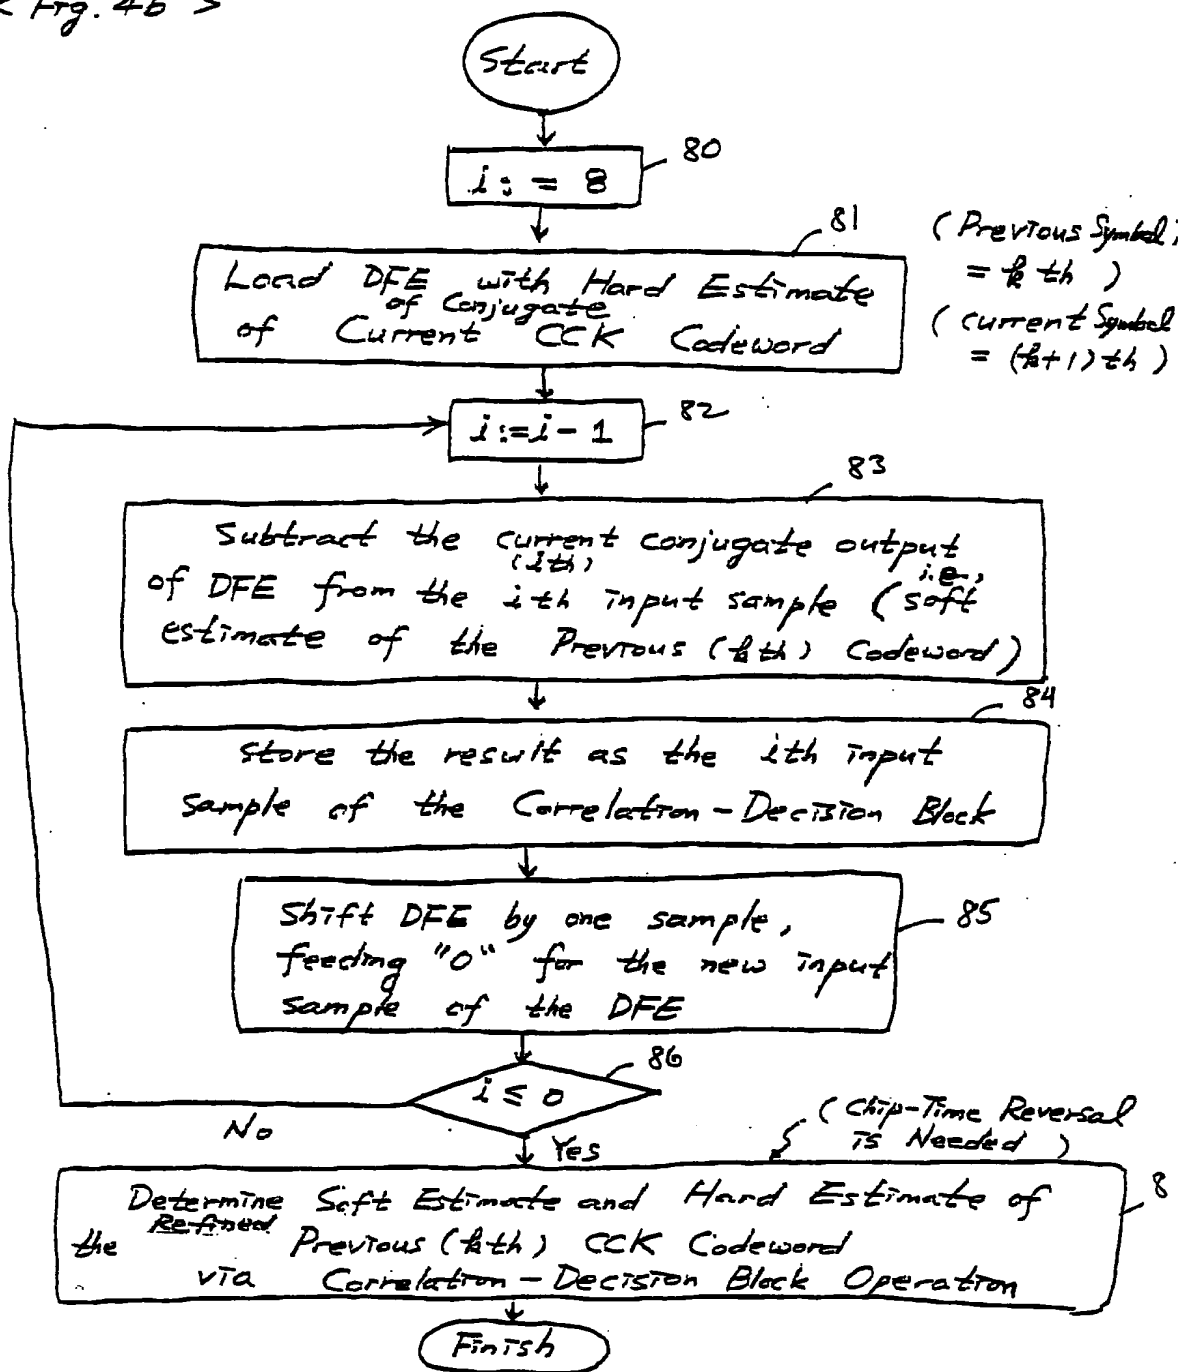 < Fig. 4b >
Start
80
i := 8
81
Load DFE with Hard Estimate
of Conjugate
of Current CCK Codeword
( Previous Symbol
= k th )
( Current Symbol
= (k+1) th )
82
i := i - 1
83
Subtract the current conjugate output
(ith)
i.e.,
of DFE from the ith input sample ( soft
estimate of the Previous (kth) Codeword )
84
Store the result as the ith input
sample of the Correlation-Decision Block
85
Shift DFE by one sample,
feeding "0" for the new input
sample of the DFE
86
i ≤ 0
No
Yes
( Chip-Time Reversal
is Needed )
8
Determine Soft Estimate and Hard Estimate of
Refined
the Previous (kth) CCK Codeword
via Correlation-Decision Block Operation
Finish